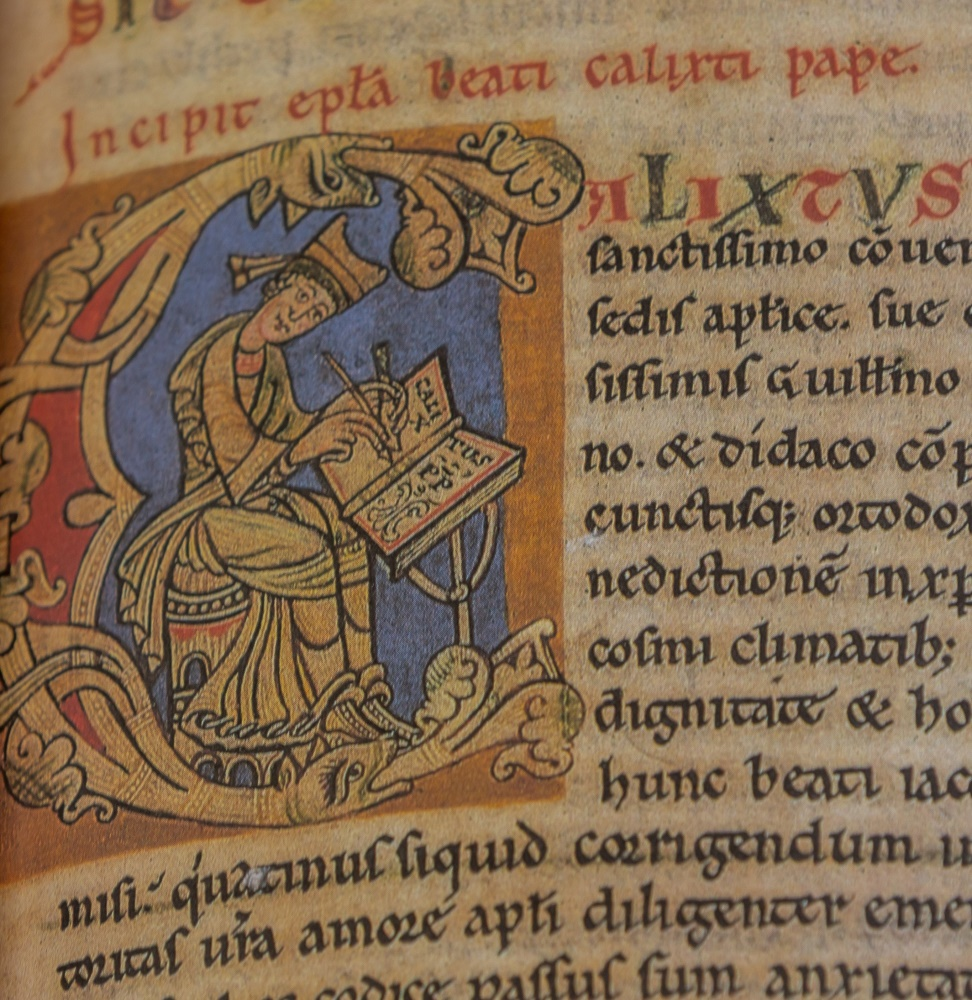 Incipit epła beati calixti pape.
CALIXTVS
sanctissimo cōuen
sedis apłice. sue
sissimis Guiłłmo
no. & didaco cōp
cunctisq; ortodox
nedictionē inxp
cosmi climatib;
dignitate & ho
hunc beati iac
misi. quatinus siquid corrigendum u
toritas ur̄a amore apłi diligenter eme
codice passus sum anxietat